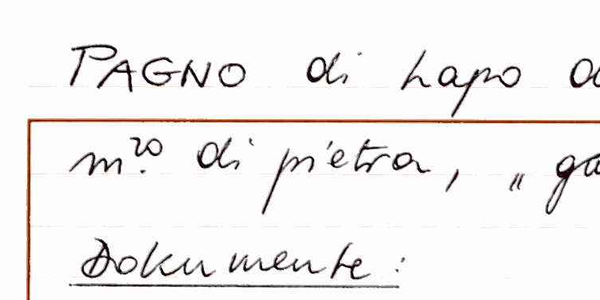 PAGNO di Lapo
m.ro di pietra, „
Dokumente: